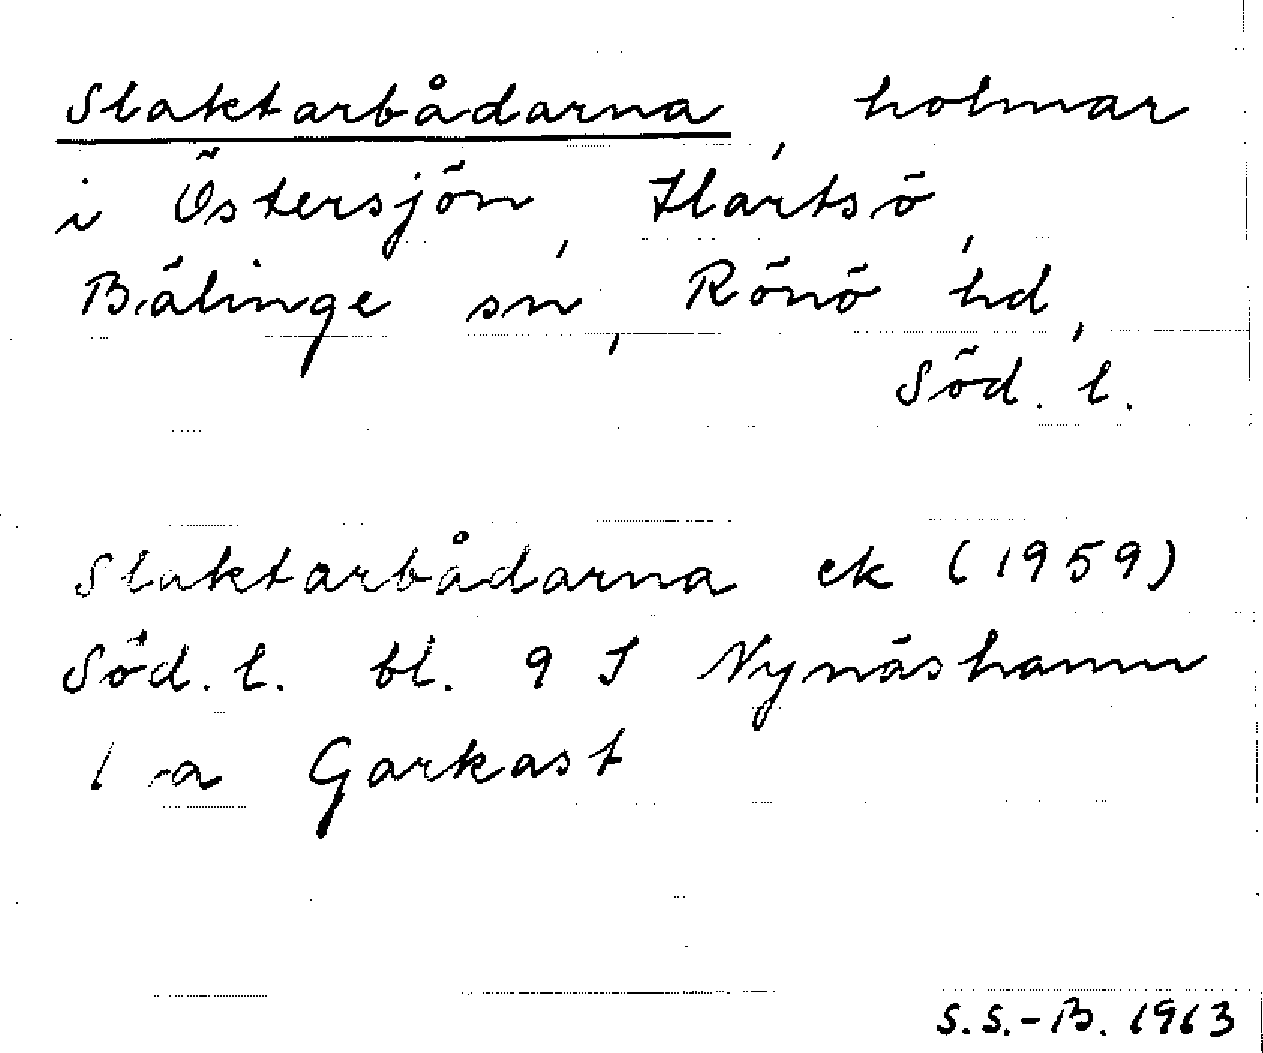 Slaktarbådarna, holmar
i Östersjön, Hartsö,
Bälinge sn, Rönö hd,
Söd. l.
Slaktarbådarna ek (1959)
Söd. l. bl. 9 I Nynäshamn
1 a Garkast
S.S.-B. 1963